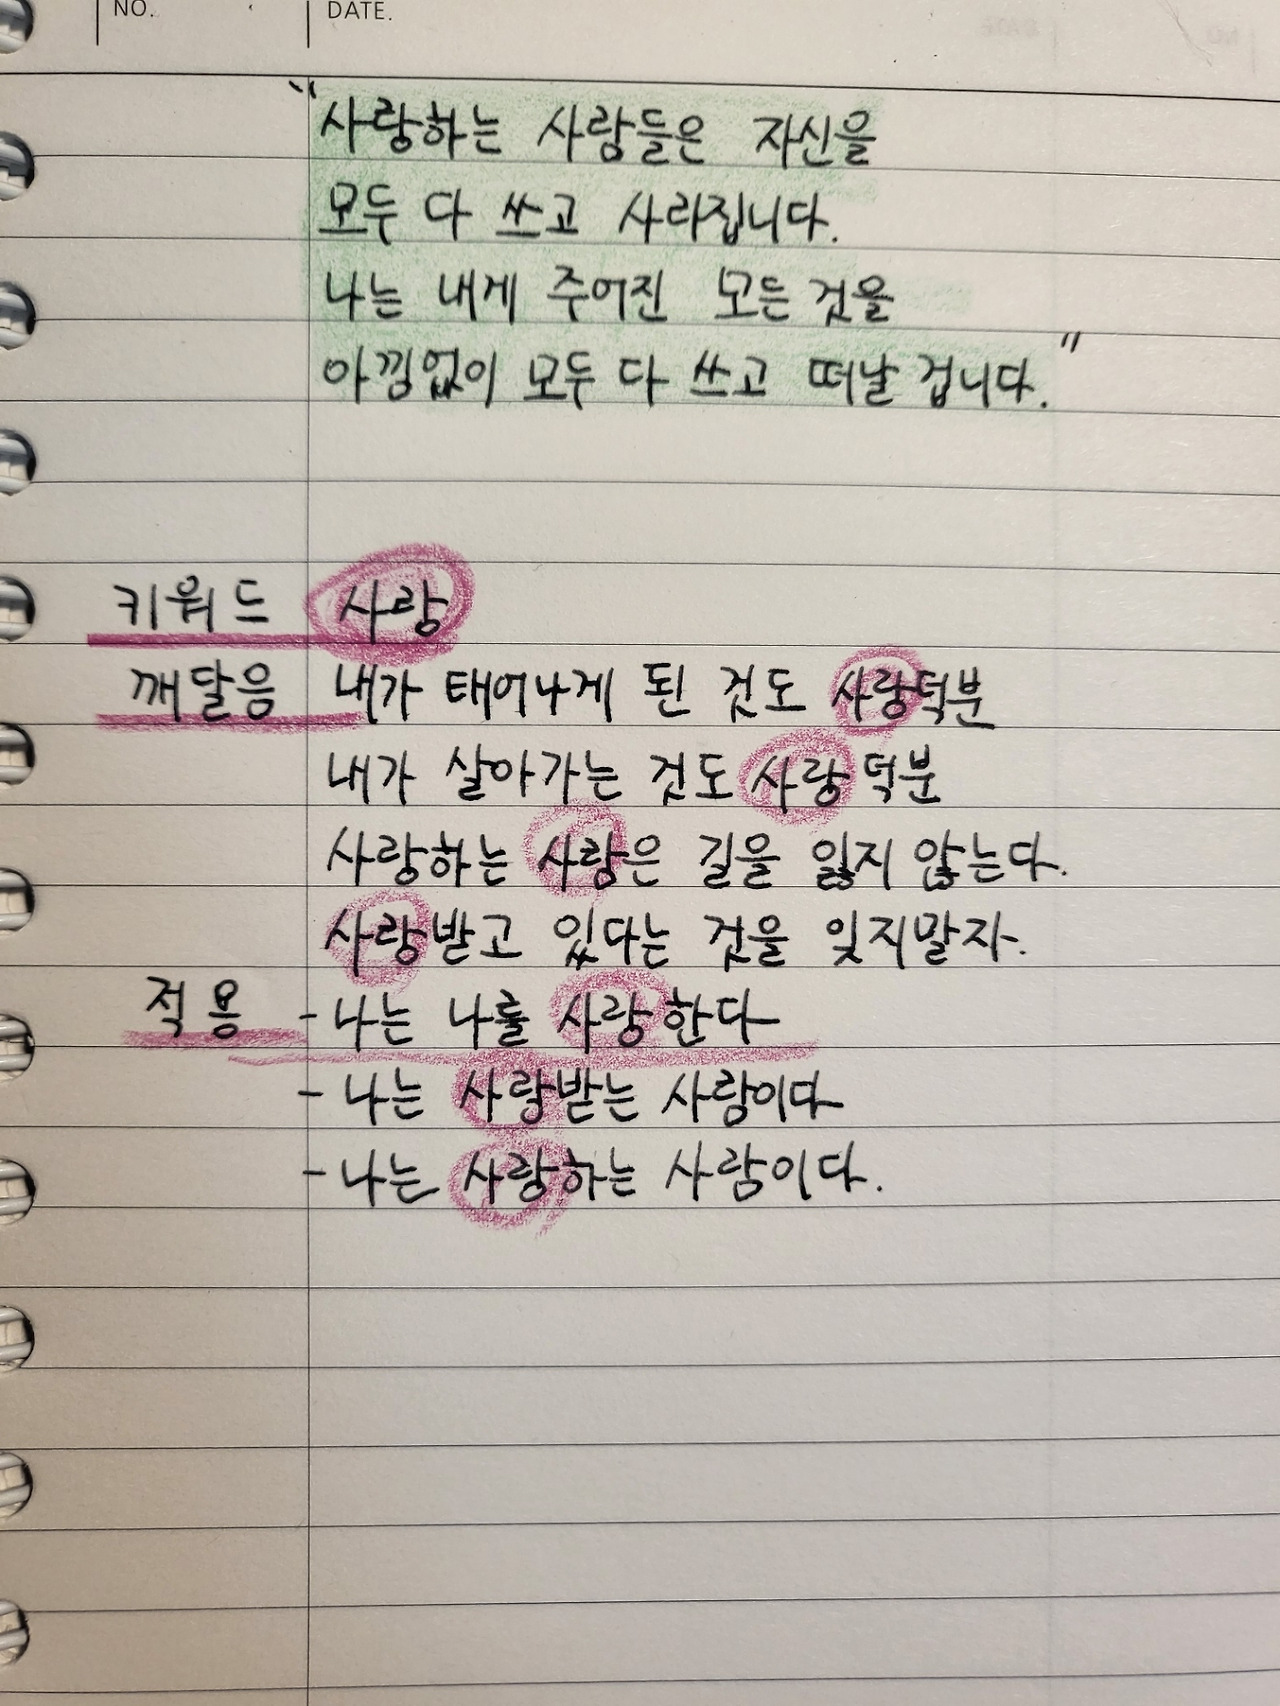 NO.
DATE.
"사랑하는 사람들은 자신을
모두 다 쓰고 사라집니다.
나는 내게 주어진 모든 것을
아낌없이 모두 다 쓰고 떠날 겁니다."
키워드 사랑
깨달음 내가 태어나게 된 것도 사랑덕분
내가 살아가는 것도 사랑덕분
사랑하는 사람은 길을 잃지 않는다.
사랑받고 있다는 것을 잊지말자.
적용 - 나는 나를 사랑한다
- 나는 사랑받는 사람이다
- 나는 사랑하는 사람이다.